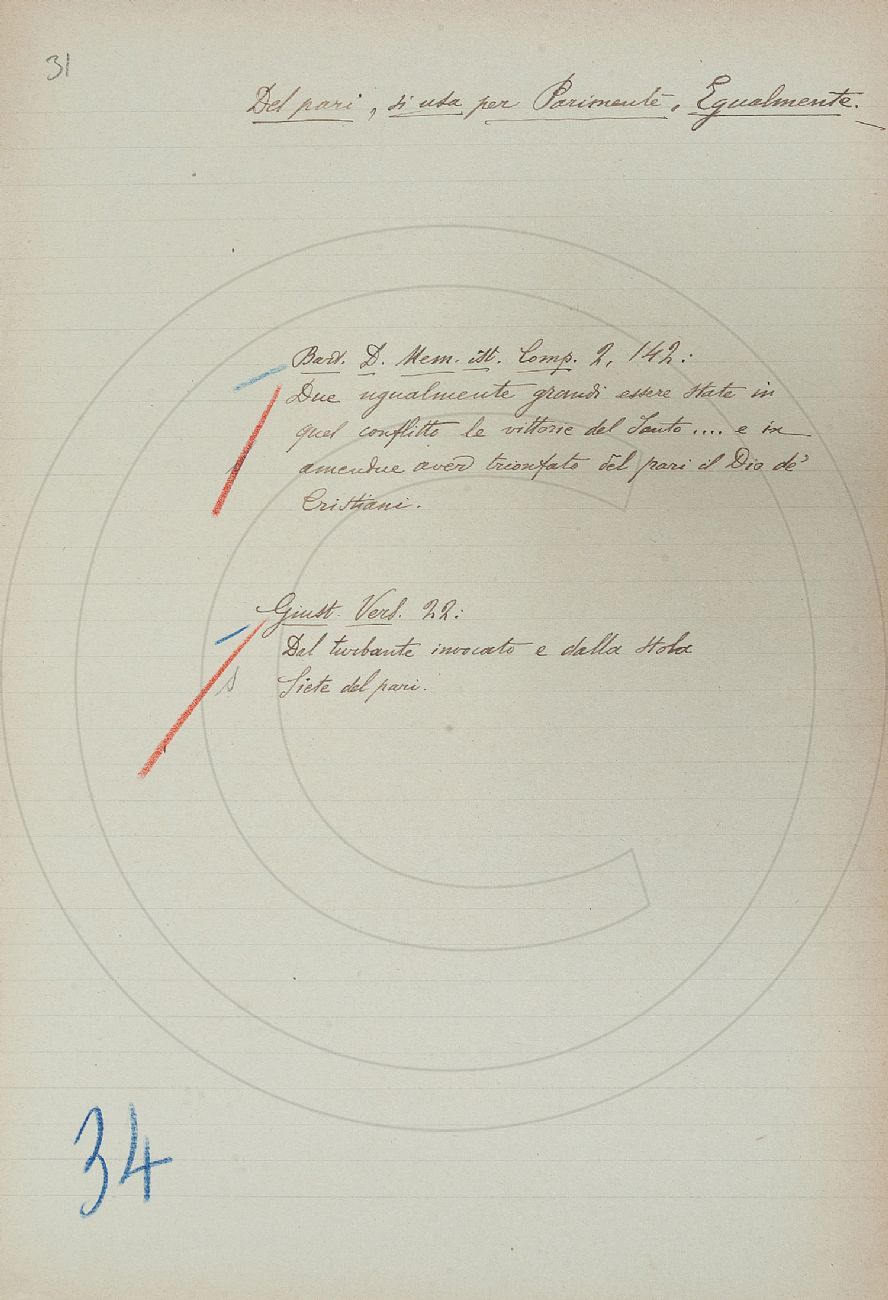 31
Del pari, si usa per Parimente, Egualmente.
Bart. D. Mem. ist. Comp. 2, 142:
Due ugualmente grandi essere state in
quel conflitto le vittorie del Santo.... e in
amendue aver trionfato del pari il Dio de'
Cristiani.
Giust. Vers. 22:
Dal turbante invocato e dalla stola
Siete del pari.
34